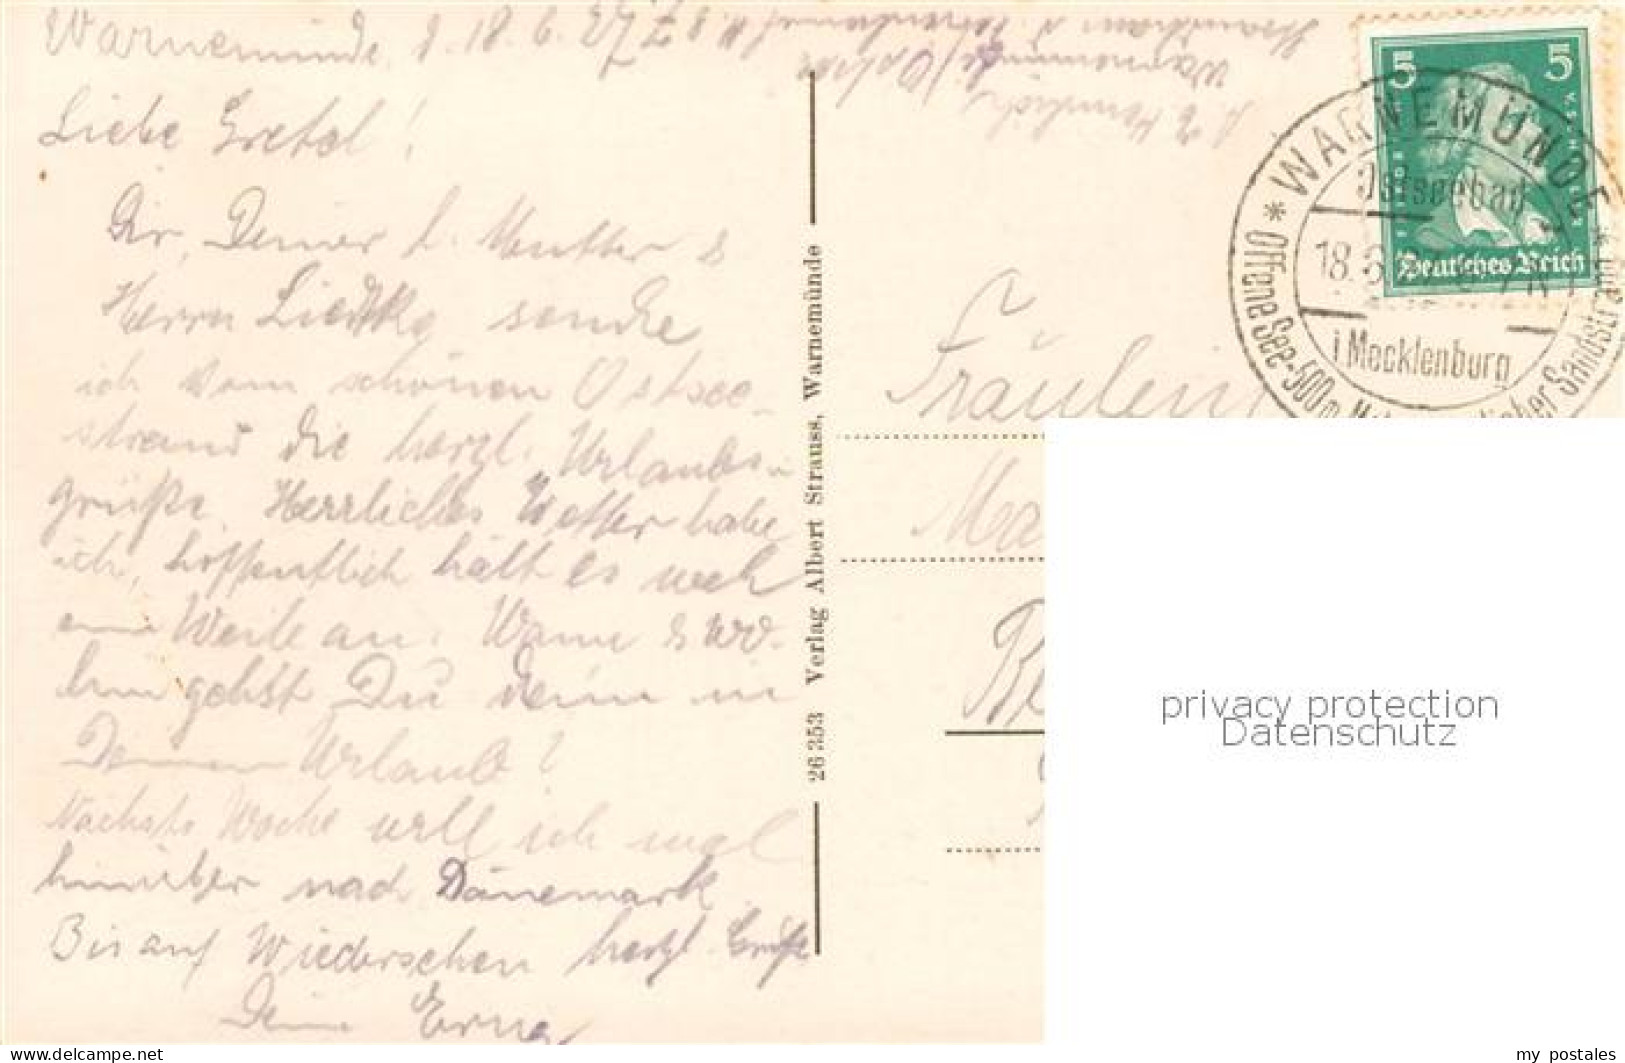 Warnemünde, d. 18.6.27
Liebe Gretel!
Dir, Deiner l. Mutter &
Herrn Liedtke sende
ich vom schönen Ostsee-
strand die herzl. Urlaubs-
grüße. Herrliches Wetter habe
ich, hoffentlich hält es noch
eine Weile an. Wann & wo-
hin gehst Du denn in
Deinen Urlaub?
Nächste Woche will ich mal
hinüber nach Dänemark
Bis auf Wiedersehen herzl. Grüße
Deine Erna
Warnemünde
26 353 Verlag Albert Strauss, Warnemünde
Fräulein
5 5
Deutsches Reich
* WARNEMÜNDE *
Ostseebad
18.6.
i Mecklenburg
Offene See-500m
privacy protection
Datenschutz
my postales